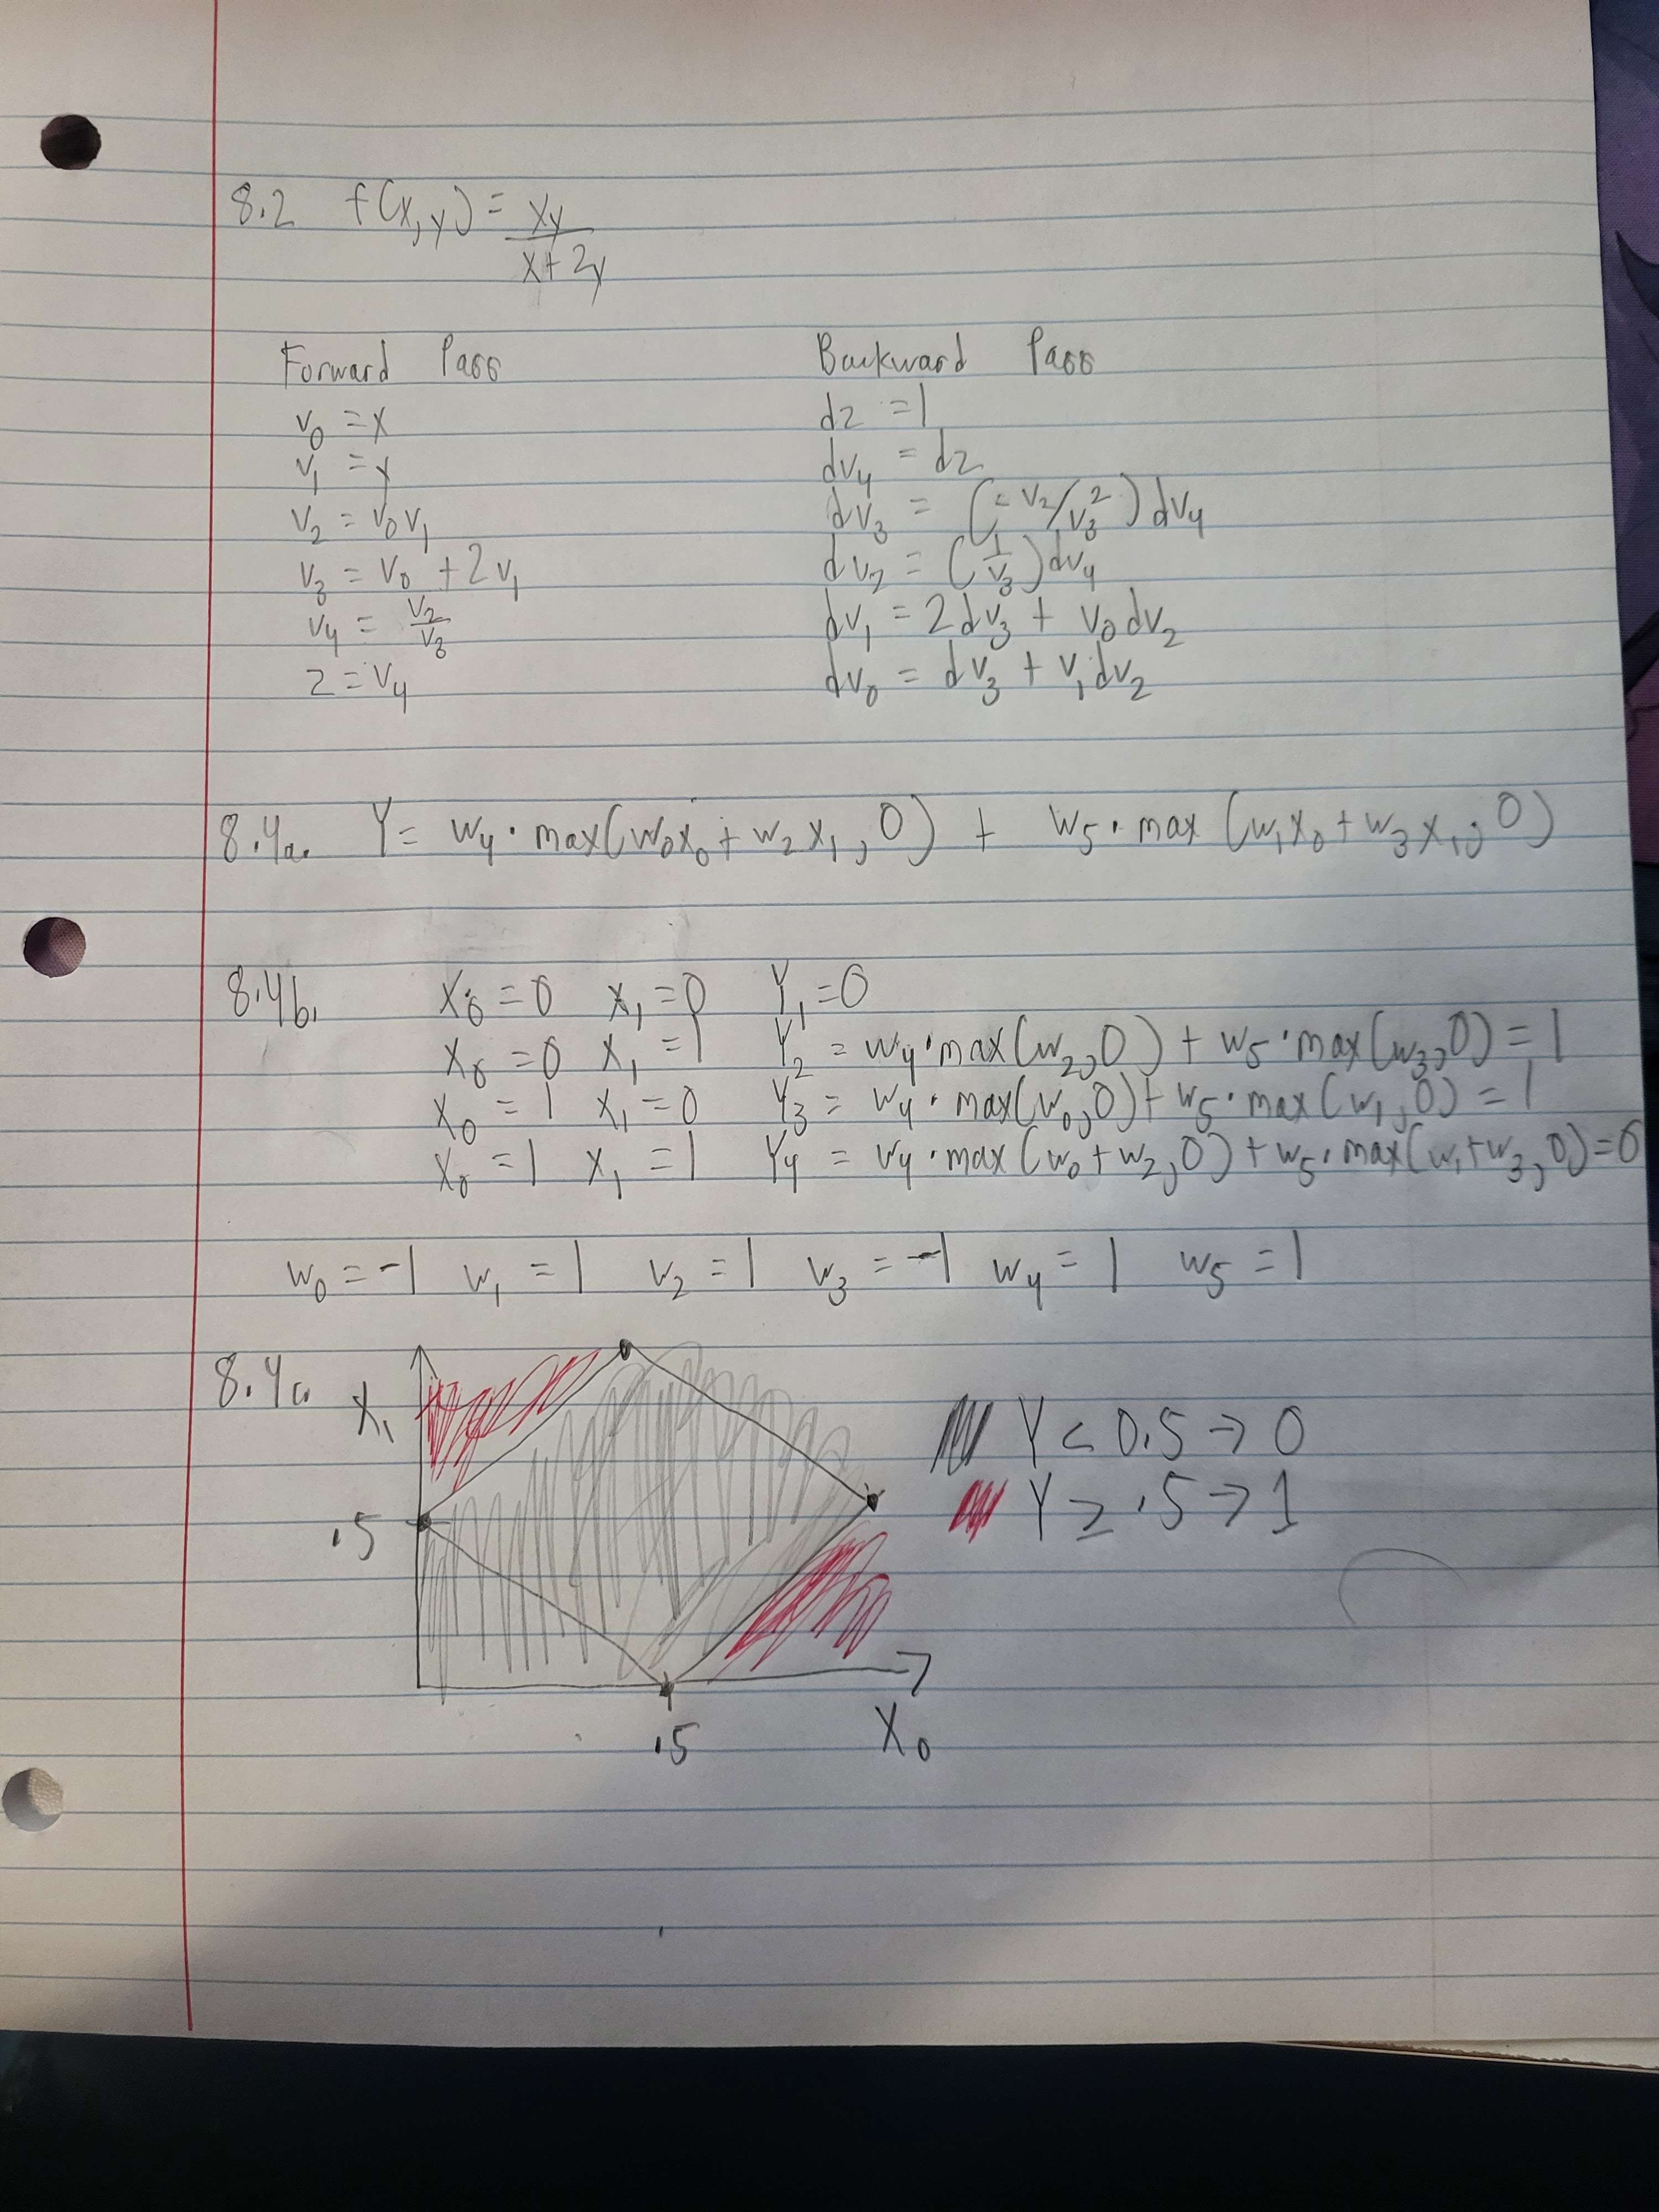 8.2 f(x,y) = xy / x+2y
Forward Pass
v₀ = x
v₁ = y
v₂ = v₀v₁
v₃ = v₀ + 2v₁
v₄ = v₂/v₃
z = v₄
Backward Pass
dz = 1
dv₄ = dz
dv₃ = (-v₂/v₃²)dv₄
dv₂ = (1/v₃)dv₄
dv₁ = 2dv₃ + v₀dv₂
dv₀ = dv₃ + v₁dv₂
8.4a. Y = w₄·max(w₀x₀ + w₂x₁, 0) + w₅·max(w₁x₀ + w₃x₁, 0)
8.4b. x₀ = 0 x₁ = 0 Y₁ = 0
x₀ = 0 x₁ = 1 Y₂ = w₄·max(w₂,0) + w₅·max(w₃,0) = 1
x₀ = 1 x₁ = 0 Y₃ = w₄·max(w₀,0) + w₅·max(w₁,0) = 1
x₀ = 1 x₁ = 1 Y₄ = w₄·max(w₀+w₂,0) + w₅·max(w₁+w₃,0) = 0
w₀ = -1 w₁ = 1 w₂ = 1 w₃ = -1 w₄ = 1 w₅ = 1
8.4c.
x₁
.5
.5
x₀
Y < 0.5 → 0
Y ≥ .5 → 1